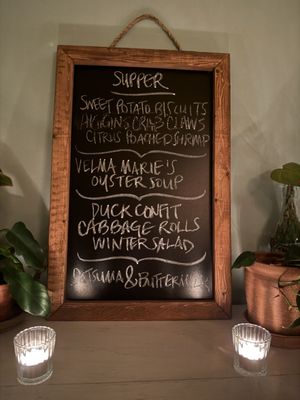 SUPPER
SWEET POTATO BISCUITS
CRAB CLAWS
CITRUS POACHED SHRIMP
VELMA MARIE'S
OYSTER SOUP
DUCK CONFIT
CABBAGE ROLLS
WINTER SALAD
SATSUMA & BUTTERMILK